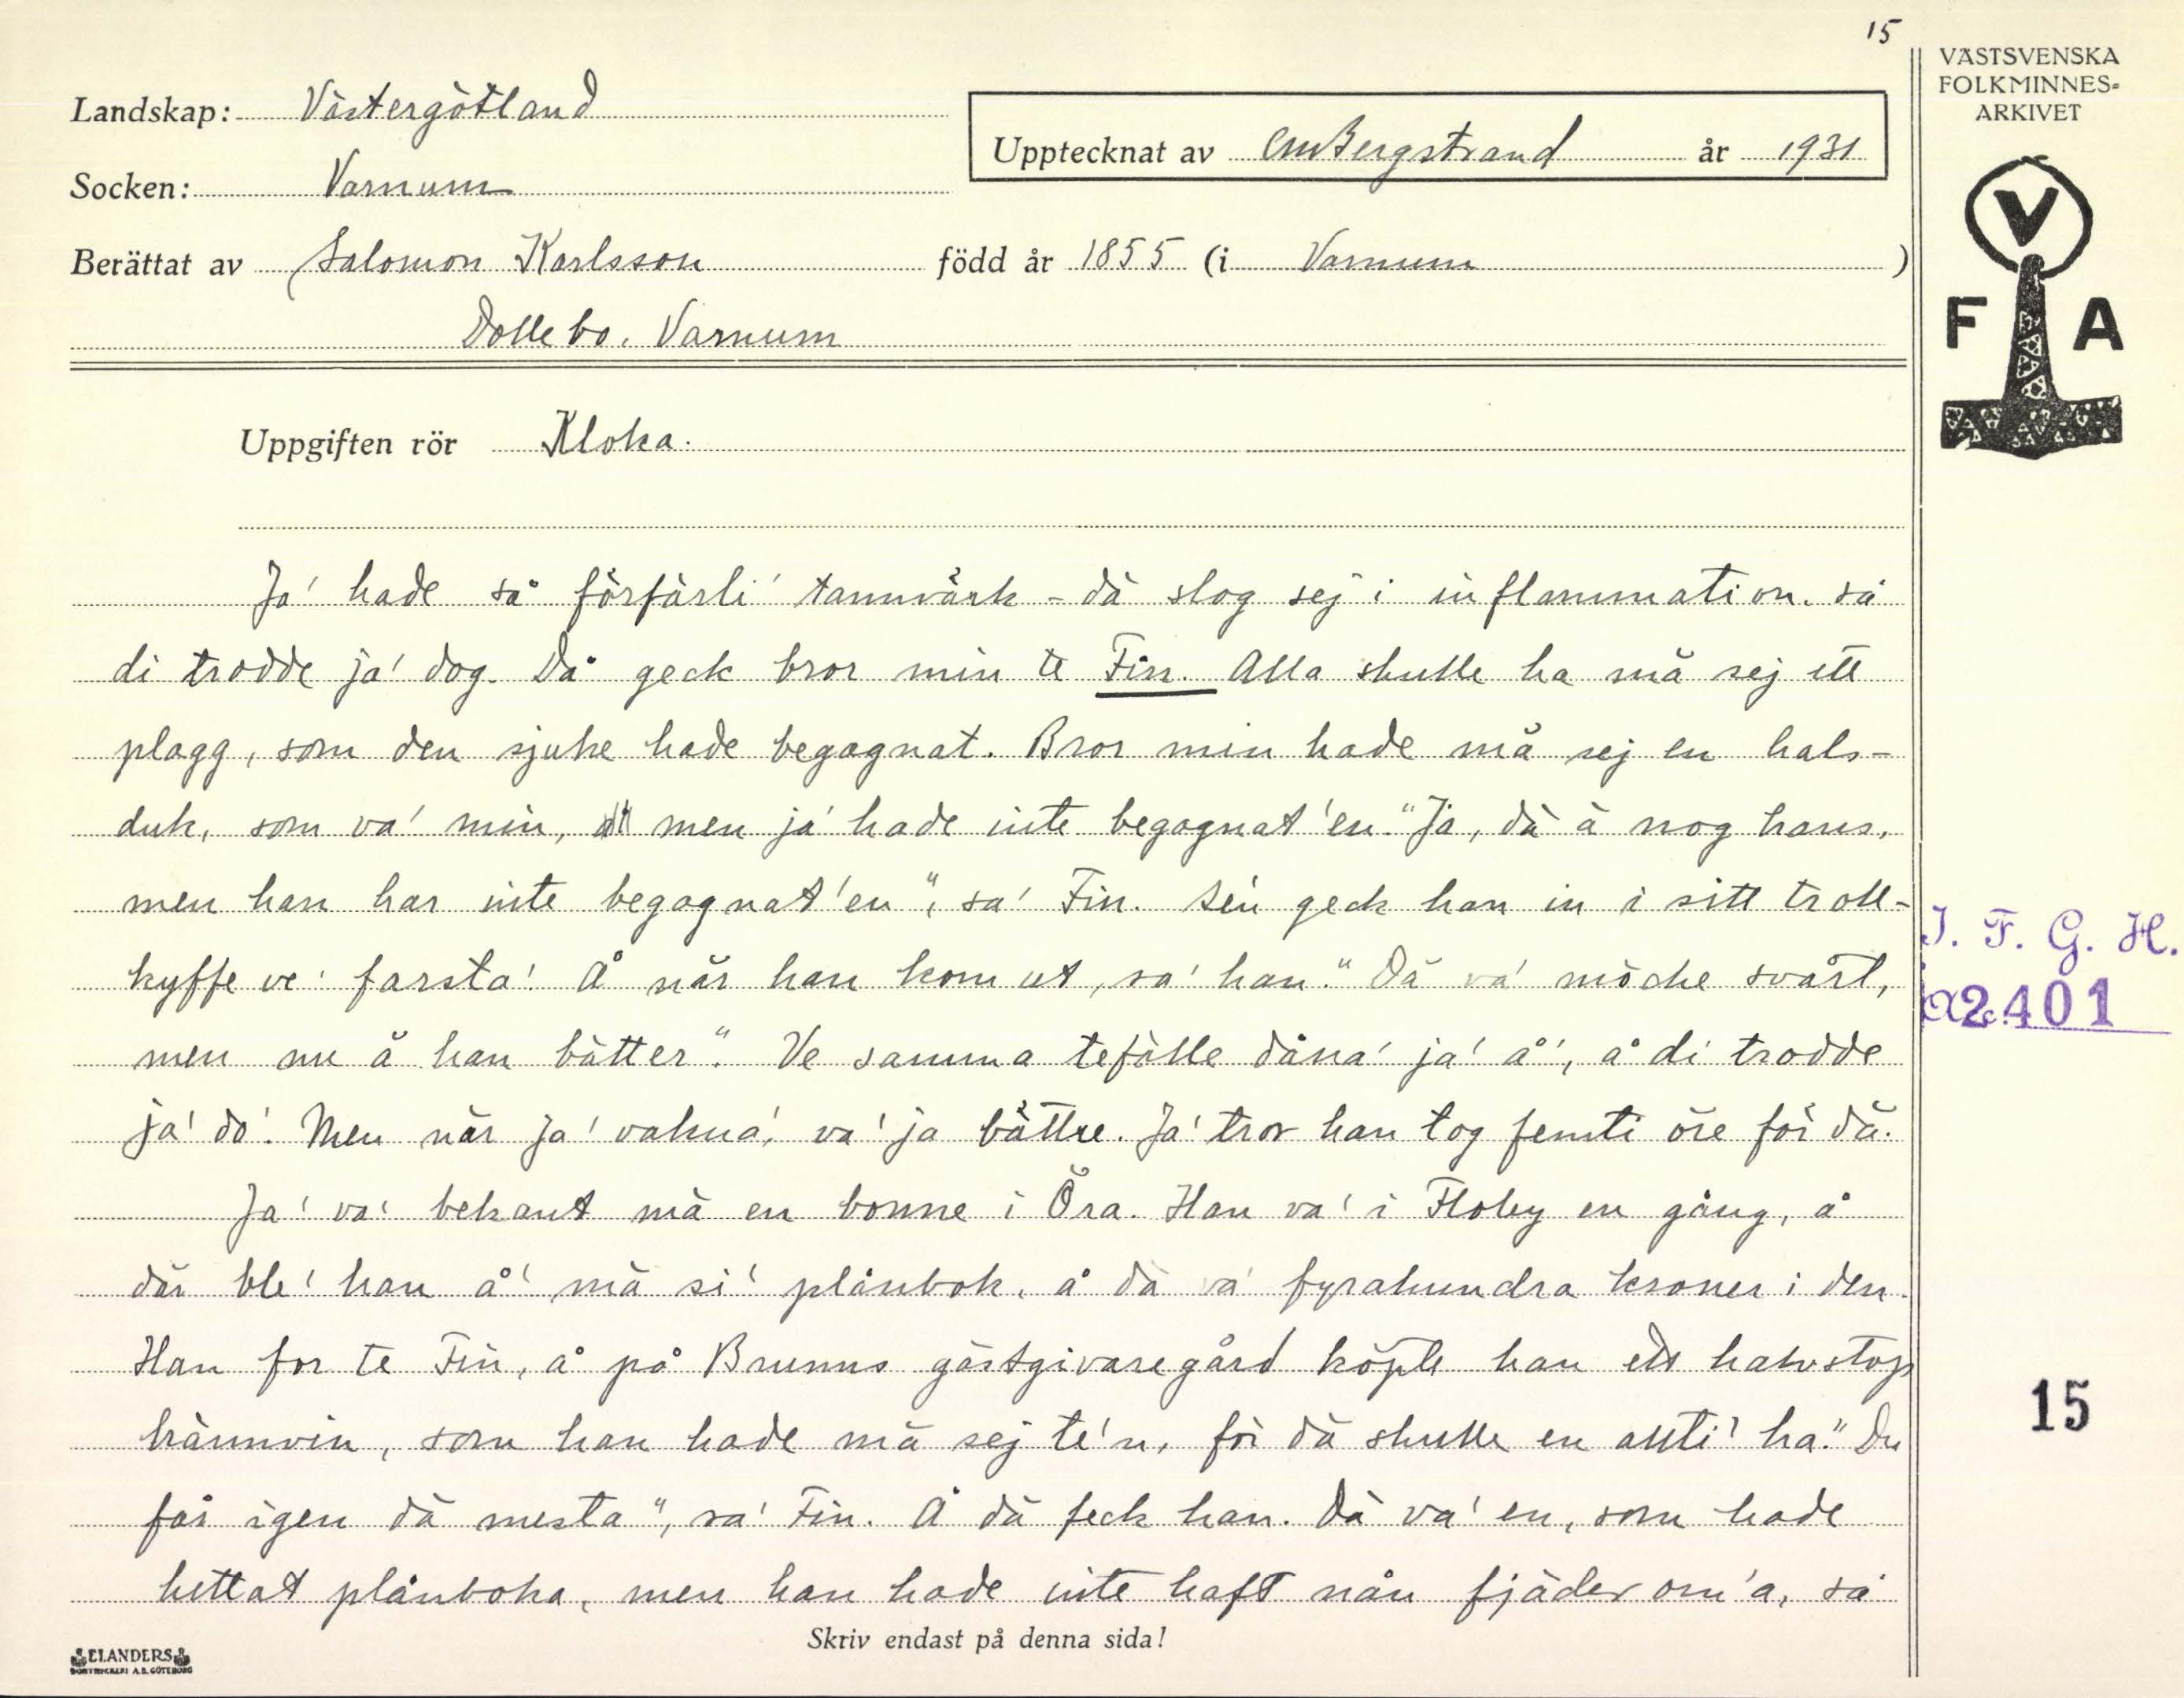 15
VÄSTSVENSKA
FOLKMINNES-
ARKIVET
Landskap: Västergötland
Upptecknat av CMBergstrand år 1931
Socken: Varnum
Berättat av Salomon Karlsson född år 1855 (i Varnum )
Dollebo. Varnum
V
F A
Uppgiften rör Kloka.
Ja' hade så förfärli' tannvärk - dä slog sej i inflammation. så
di trodde ja' dog. Då geck bror min te Fin. Alla skulle ha mä sej ett
plagg, som den sjuke hade begagnat. Bror min hade mä sej en hals-
duk, som va' min, men ja' hade inte begagnat'en. "Ja, dä ä nog hans,
men han har inte begagnat'en", sa' Fin. Sen geck han in i sitt troll-
kyffe ve' farsta'. Å när han kom ut, sa' han: "Dä va' möcke svårt,
men nu ä han bätter". Ve samma tefälle dåna' ja' å', å di trodde
ja' do'. Men när ja' vakna', va' ja bättre. Ja' tror han tog femti öre för dä.
Ja' va' bekant mä en bonne i Öra. Han va' i Floby en gång, å
där ble' han å' mä si' plånbok, å dä va' fyrahundra kroner i den.
Han for te Fin, å på Brunns gästgivaregård köpte han ett halvstop
brännvin, som han hade mä sej te'n, för dä skulle en allti' ha. "Du
får igen dä mesta", sa' Fin. Å dä feck han. Dä va' en, som hade
hittat plånboka, men han hade inte haft nån fjäder om'a, så
J. F. G. H.
2401
15
Skriv endast på denna sida!
ELANDERS
BOKTRYCKERI A.B. GÖTEBORG